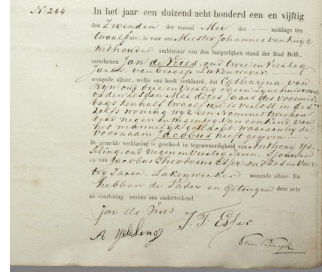 No 244
In het jaar een duizend acht honderd een en vijftig
den Zevenden der maand Mei des middags ten
twaalf ure, is voor ons Meester Johannes van Kuyk
Wethouder ambtenaar van den burgerlijken stand der Stad Delft,
verschenen Jan de Vries, oud twee en veertig
Jaren, van beroep Lakenwever
wonende alhier, welke ons heeft verklaard, dat Catharina van
Rijn, oud drie en veertig Jaren, zijne huisvrouw
op den zesden Mei dezes jaars des voormid-
dags ten half twaalf ure is verlost in des-
zelfs woning wijk een Nommer
van
het mannelijk geslacht, waaraan hij de
voornaam Jacobus heeft gegeven
De gemelde verklaring is geschied in tegenwoordigheid van Anthony Ys-
seling, oud negen en veertig Jaren,
en van Jacobus Theodorus Esser, oud zes en veer-
tig Jaren, Lakenwerker wonende alhier. En
hebben de Vader en Getuigen deze acte
na voorlezing nevens ons onderteekend.
Jan de Vries
J. T. Esser
A Ysseling
van Kuyk